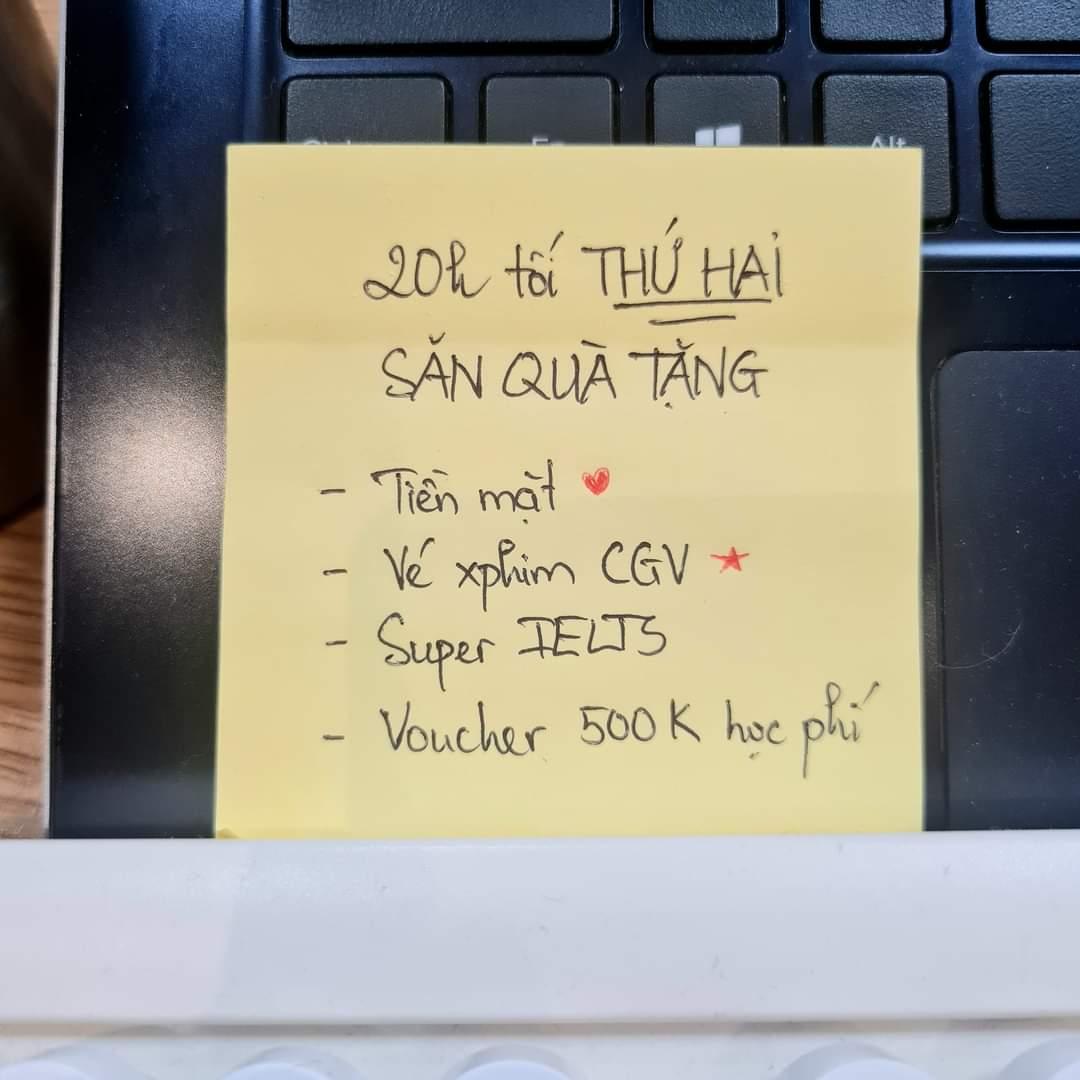 Alt
20h tối THỨ HAI
SĂN QUÀ TẶNG
- Tiền mặt
- Vé xphim CGV
- Super IELTS
- Voucher 500K học phí